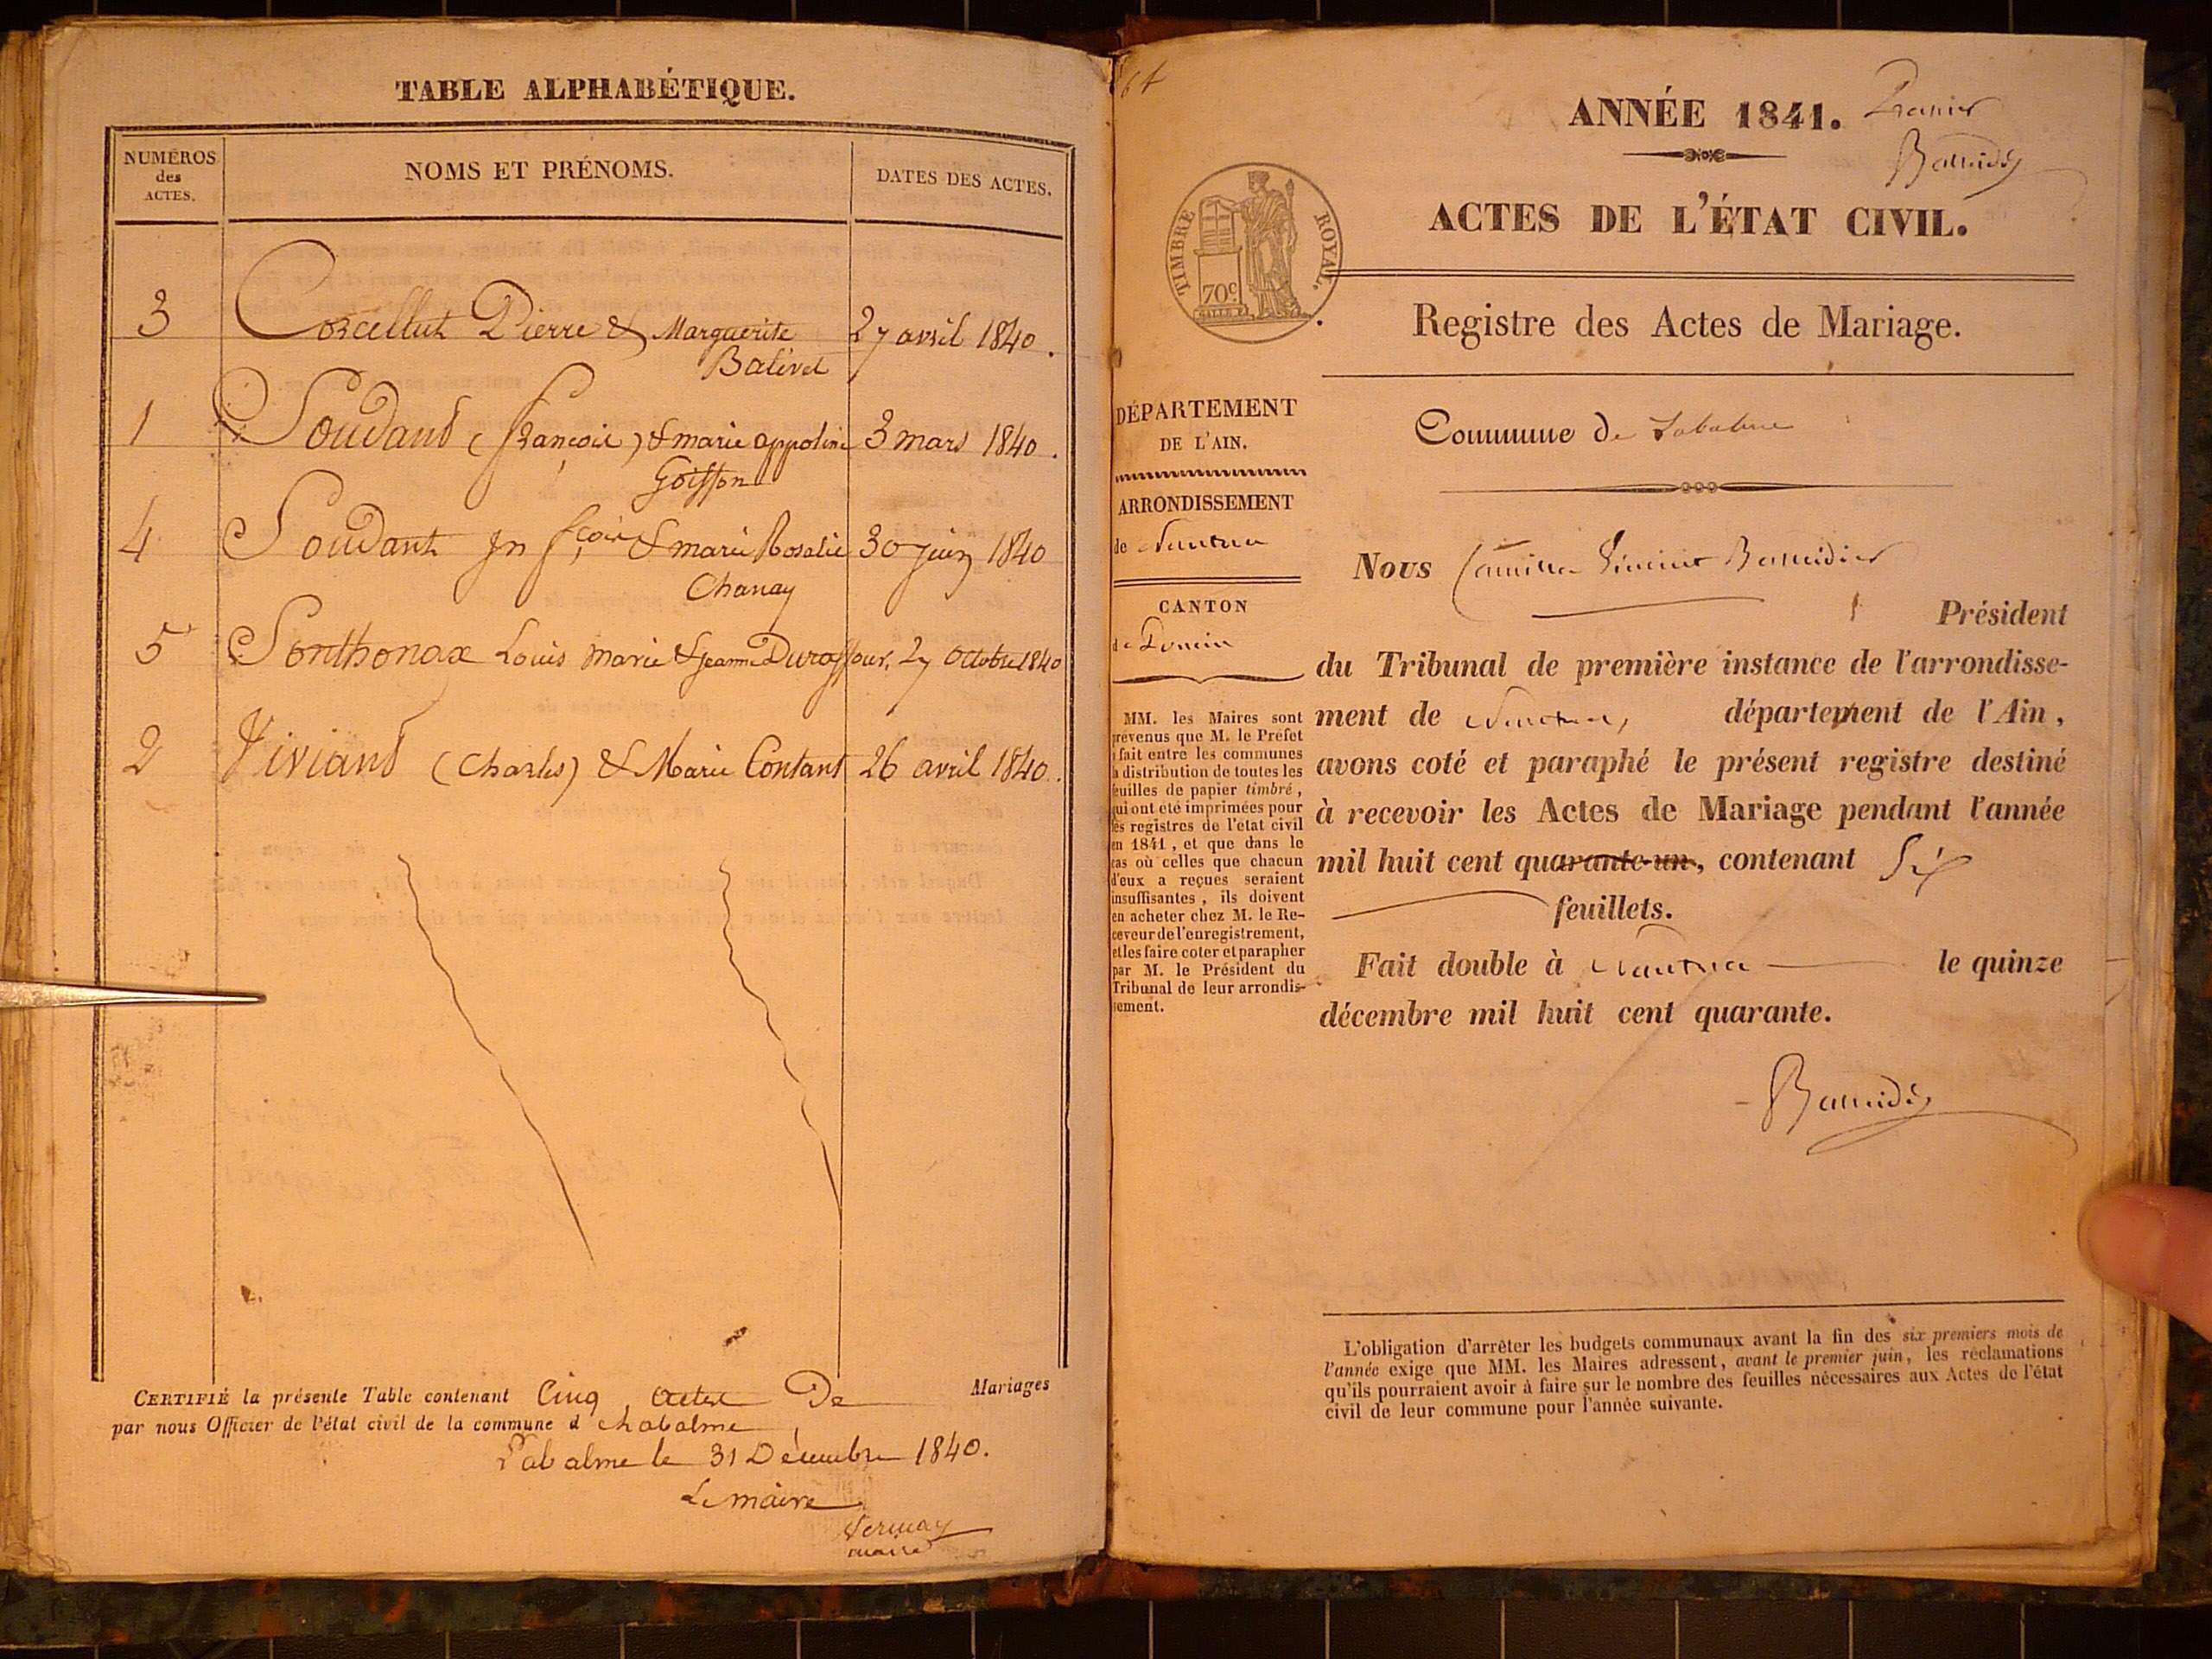 TABLE ALPHABÉTIQUE.
NUMÉROS des ACTES. NOMS ET PRÉNOMS. DATES DES ACTES.
3 Corcellut Pierre & Marguerite 27 avril 1840.
Balivet
1 Soudand (françois) & marie appoline 3 mars 1840.
Goiffon
4 Soudant jn fçois & marie Rosalie 30 juin 1840
Chanay
5 Sonthonax Louis marie & jeanne Duraffour, 27 octobre 1840
2 Viviand (Charles) & Marie Contant 26 avril 1840.
CERTIFIÉ la présente Table contenant Cinq actes De Mariages
par nous Officier de l'état civil de la commune d
Labalme le 31 Décembre 1840.
Le maire
maire
64
ANNÉE 1841. Premier
ACTES DE L'ÉTAT CIVIL.
TIMBRE ROYAL.
70c
Registre des Actes de Mariage.
DÉPARTEMENT
DE L'AIN.
ARRONDISSEMENT
de Nantua
CANTON
de Poncin
MM. les Maires sont
prévenus que M. le Préfet
fait entre les communes
la distribution de toutes les
feuilles de papier timbré,
qui ont été imprimées pour
les registres de l'état civil
en 1841, et que dans le
cas où celles que chacun
d'eux a reçues seraient
insuffisantes, ils doivent
en acheter chez M. le Re-
ceveur de l'enregistrement,
et les faire coter et parapher
par M. le Président du
Tribunal de leur arrondis-
sement.
Commune de Labalme
Nous Camille
Président
du Tribunal de première instance de l'arrondisse-
ment de Nantua, département de l'Ain,
avons coté et paraphé le présent registre destiné
à recevoir les Actes de Mariage pendant l'année
mil huit cent quarante-un, contenant Six
feuillets.
Fait double à Nantua le quinze
décembre mil huit cent quarante.
L'obligation d'arrêter les budgets communaux avant la fin des six premiers mois de
l'année exige que MM. les Maires adressent, avant le premier juin, les réclamations
qu'ils pourraient avoir à faire sur le nombre des feuilles nécessaires aux Actes de l'état
civil de leur commune pour l'année suivante.